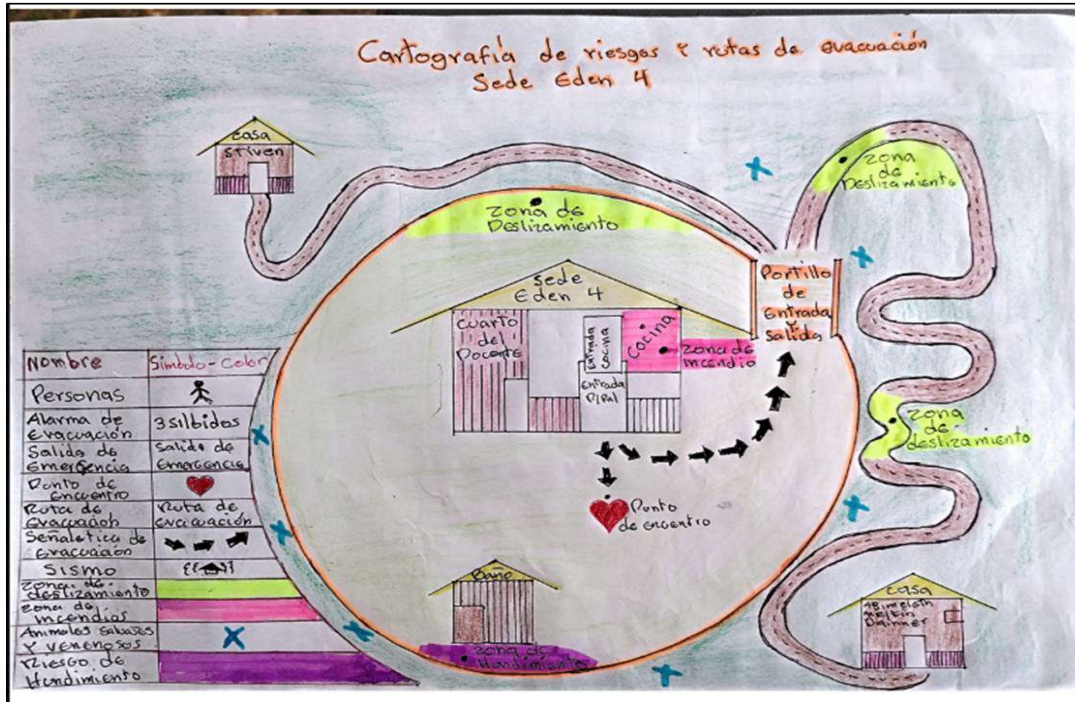 Cartografía de riesgos y rutas de evacuación
Sede Eden 4
casa
stiven
zona de
Deslizamiento
zona
de
Deslizamiento
Portillo
de
Entrada
Y
Salida
sede
Eden 4
Cuarto
del
Docente
Entrada
cocina
Cocina
zona de
incendio
Entrada
P/Pal
zona
de
deslizamiento
Punto
de encentro
Baño
zona de
Hundimiento
casa
Nombre Simbolo-Color
Personas
Alarma de
Evacuación
3 silbidos
Salida de
Emergencia
Salida de
emergencia
Punto de
encuentro
Ruta de
Evacuación
Ruta de
evacuación
Señaletica de
evacuación
Sismo
zona de
deslizamiento
zona de
incendios
Animales salvajes
Y venenosos
Riesgo de
Hundimiento